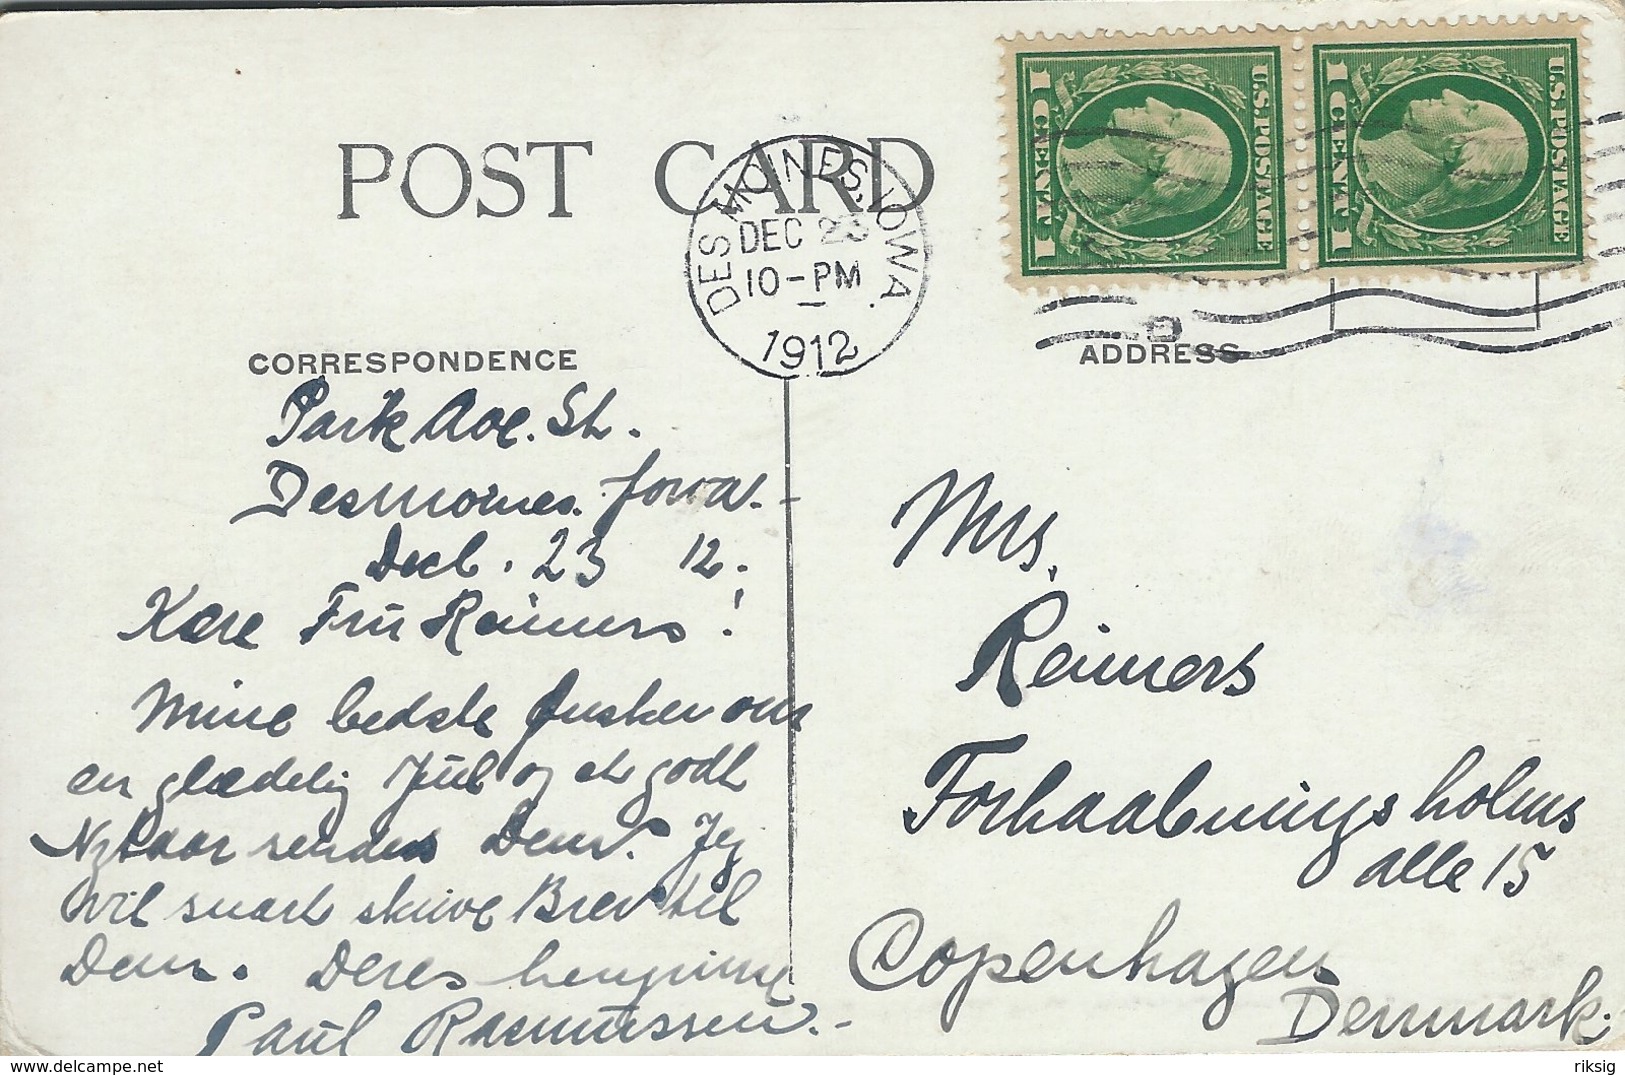 POST CARD
DES MOINES, IOWA.
DEC 23
10-PM
1912
U.S. POSTAGE
1 CENT 1
U.S. POSTAGE
1 CENT 1
CORRESPONDENCE
ADDRESS
Park Ave. St.
Desmoines. Iowa.-
Decb. 23 12.
Kære Frū Reimers!
Mine bedste Ønsker om
en glædelig Jūl og et godt
Nytaar sendes Dem. Jeg
vil snart skrive Brev til
Dem. Deres hengivne
Paūl Rasmussen.-
Mrs.
Reimers
Forhaabningsholms
alle 15
Copenhagen
Denmark.
delcampe.net
riksig